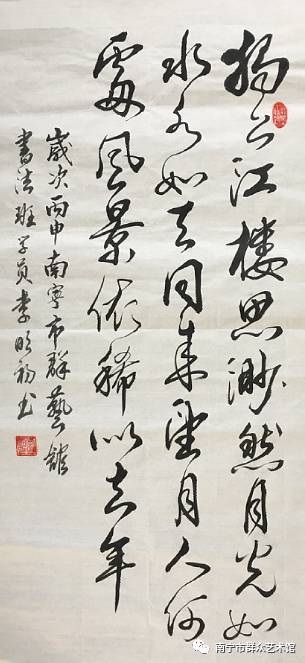 独上江楼思渺然月光如
水水如天同来望月人何
處風景依稀似去年
歲次丙申南寧市群藝館
書法班学员李明书
南宁市群众艺术馆